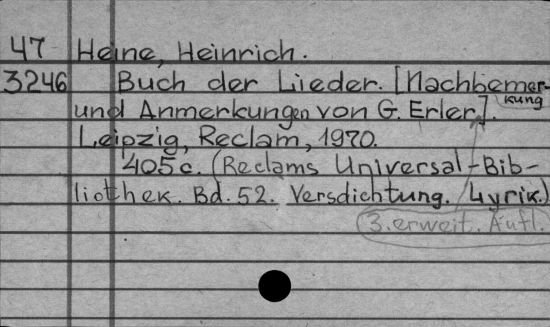 47 Heine, Heinrich.
3246 Buch der Lieder. [Nachbemer-
kung
und Anmerkungen von G. Erler].
Leipzig, Reclam, 1970.
405c. (Reclams Universal-Bib-
liothek. Bd. 52. Versdichtung. Lyrik.)
3. erweit. Aufl.